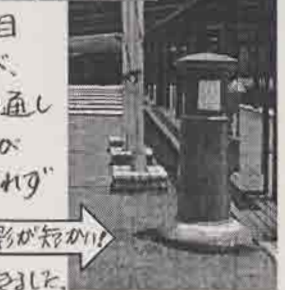 目
が、
通し
が
れず
影が短かい!
きました。